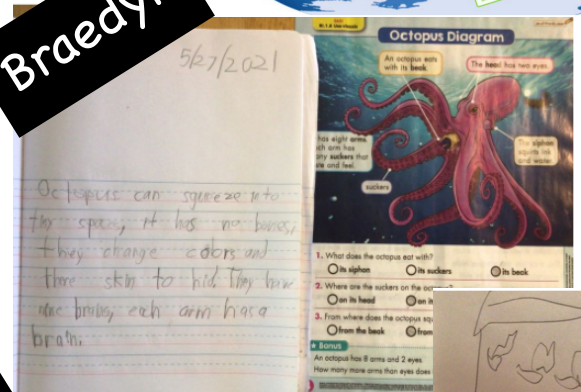 Braedy
5/27/2021
Octopus can squeeze into
tiny spaces, it has no bones,
they change colors and
there skin to hid. They have
nine brains, each arm has a
brain.
Octopus Diagram
An octopus eats
with its beak.
The head has two eyes.
has eight arms.
ch arm has
ny suckers that
le and feel.
The siphon
squirts ink
and water.
suckers
1. What does the octopus eat with?
its siphon
its suckers
its beak
2. Where are the suckers on the oct
on its head
on it
3. From where does the octopus squ
from the beak
from
Bonus
An octopus has 8 arms and 2 eyes.
How many more arms than eyes does